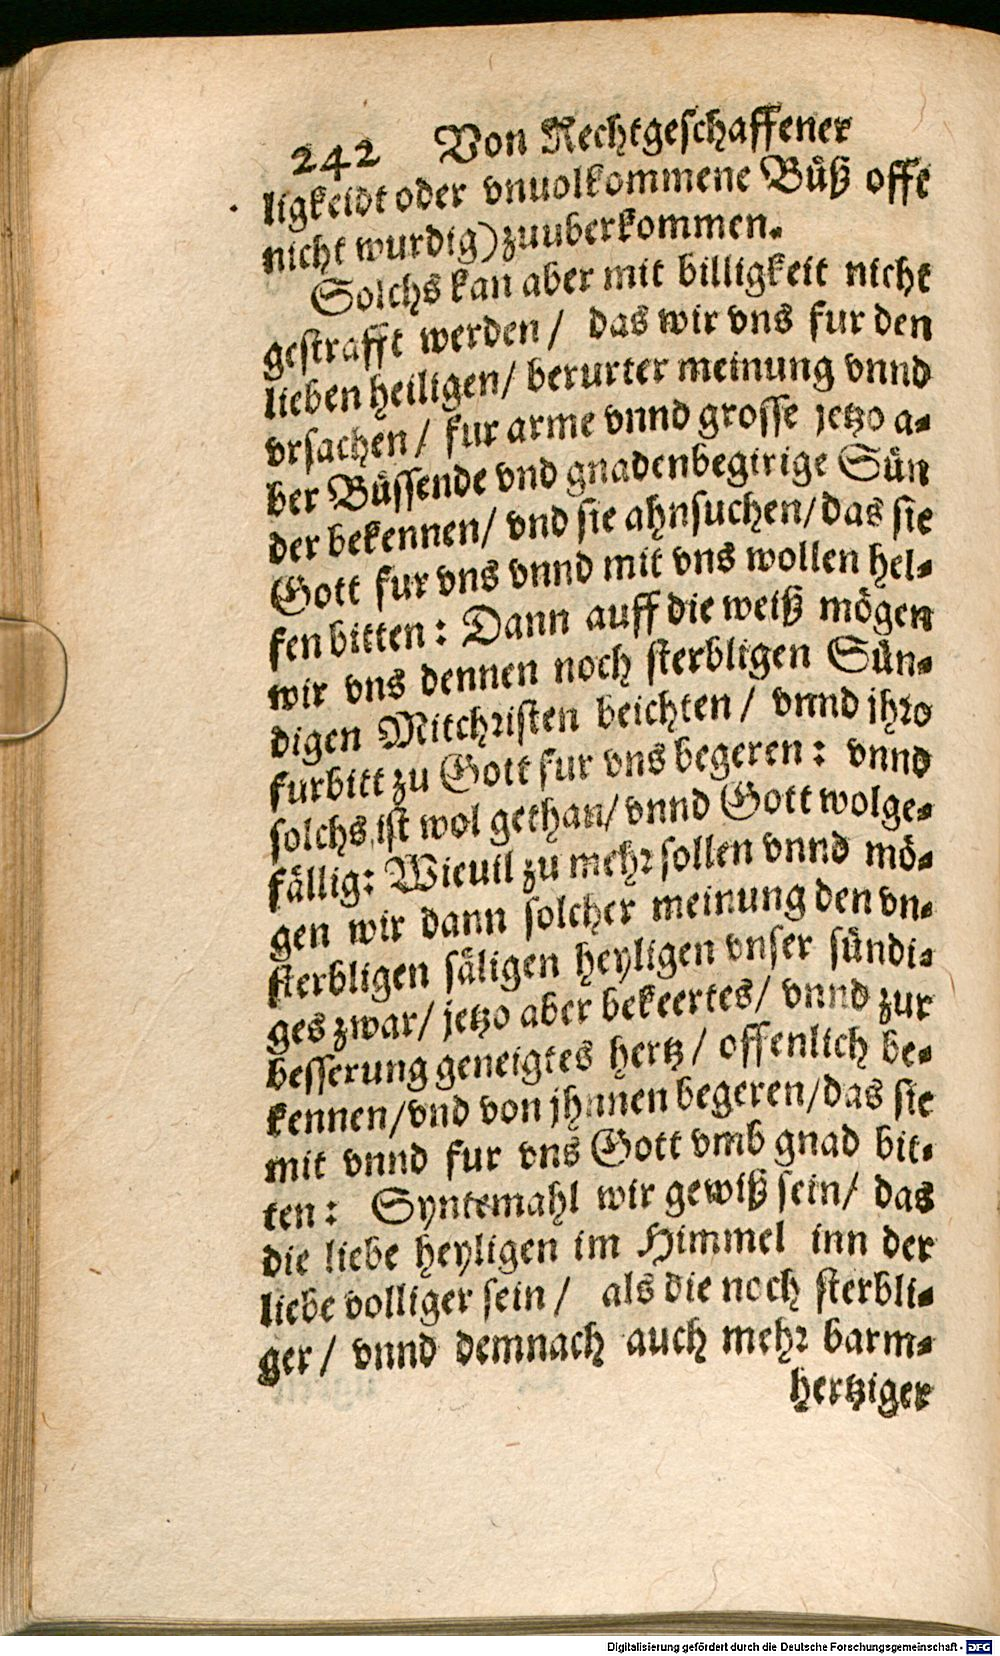 242 Von Rechtgeschaffener
ligkeidt oder vnuolkommene Büß offt
nicht wurdig) zuuberkommen.
Solchs kan aber mit billigkeit nicht
gestrafft werden / das wir vns fur den
lieben heiligen / berurter meinung vnnd
vrsachen / fur arme vnnd grosse jetzo a-
ber Büssende vnd gnadenbegirige Sün
der bekennen / vnd sie ahnsuchen / das sie
Gott fur vns vnnd mit vns wollen hel-
fen bitten: Dann auff die weiß mögen
wir vns dennen noch sterbligen Sün-
digen Mitchristen beichten / vnnd jhro
furbitt zu Gott fur vns begeren: vnnd
solchs ist wol gethan / vnnd Gott wolge-
fällig: Wieuil zu mehr sollen vnnd mö-
gen wir dann solcher meinung den vn-
sterbligen säligen heyligen vnser sündi-
ges zwar / jetzo aber bekeertes / vnnd zur
besserung geneigtes hertz / offenlich be-
kennen / vnd von jhnnen begeren / das sie
mit vnnd fur vns Gott vmb gnad bit-
ten: Syntemahl wir gewiß sein / das
die liebe heyligen im Himmel inn der
liebe volliger sein / als die noch sterbli-
ger / vnnd demnach auch mehr barm-
hertziger
Digitalisierung gefördert durch die Deutsche Forschungsgemeinschaft - DFG